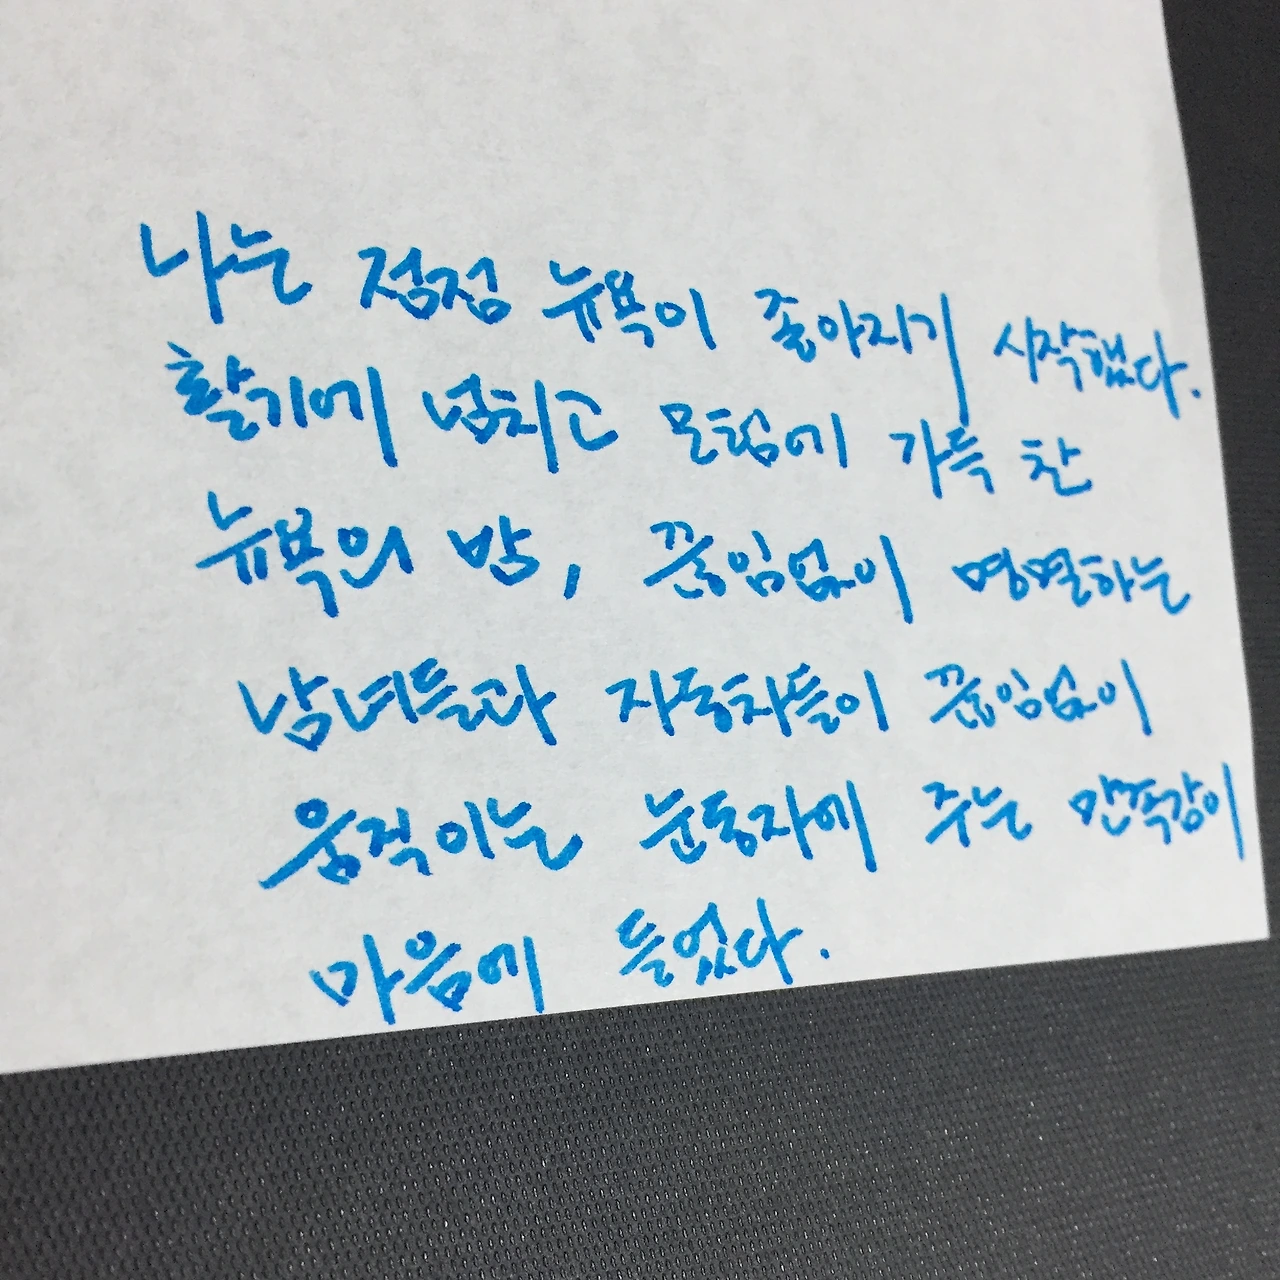 나는 점점 뉴욕이 좋아지기 시작했다.
활기에 넘치고 모험에 가득 찬
뉴욕의 밤, 끊임없이 명멸하는
남녀들과 자동차들이 끊임없이
움직이는 눈동자에 주는 만족감이
마음에 들었다.